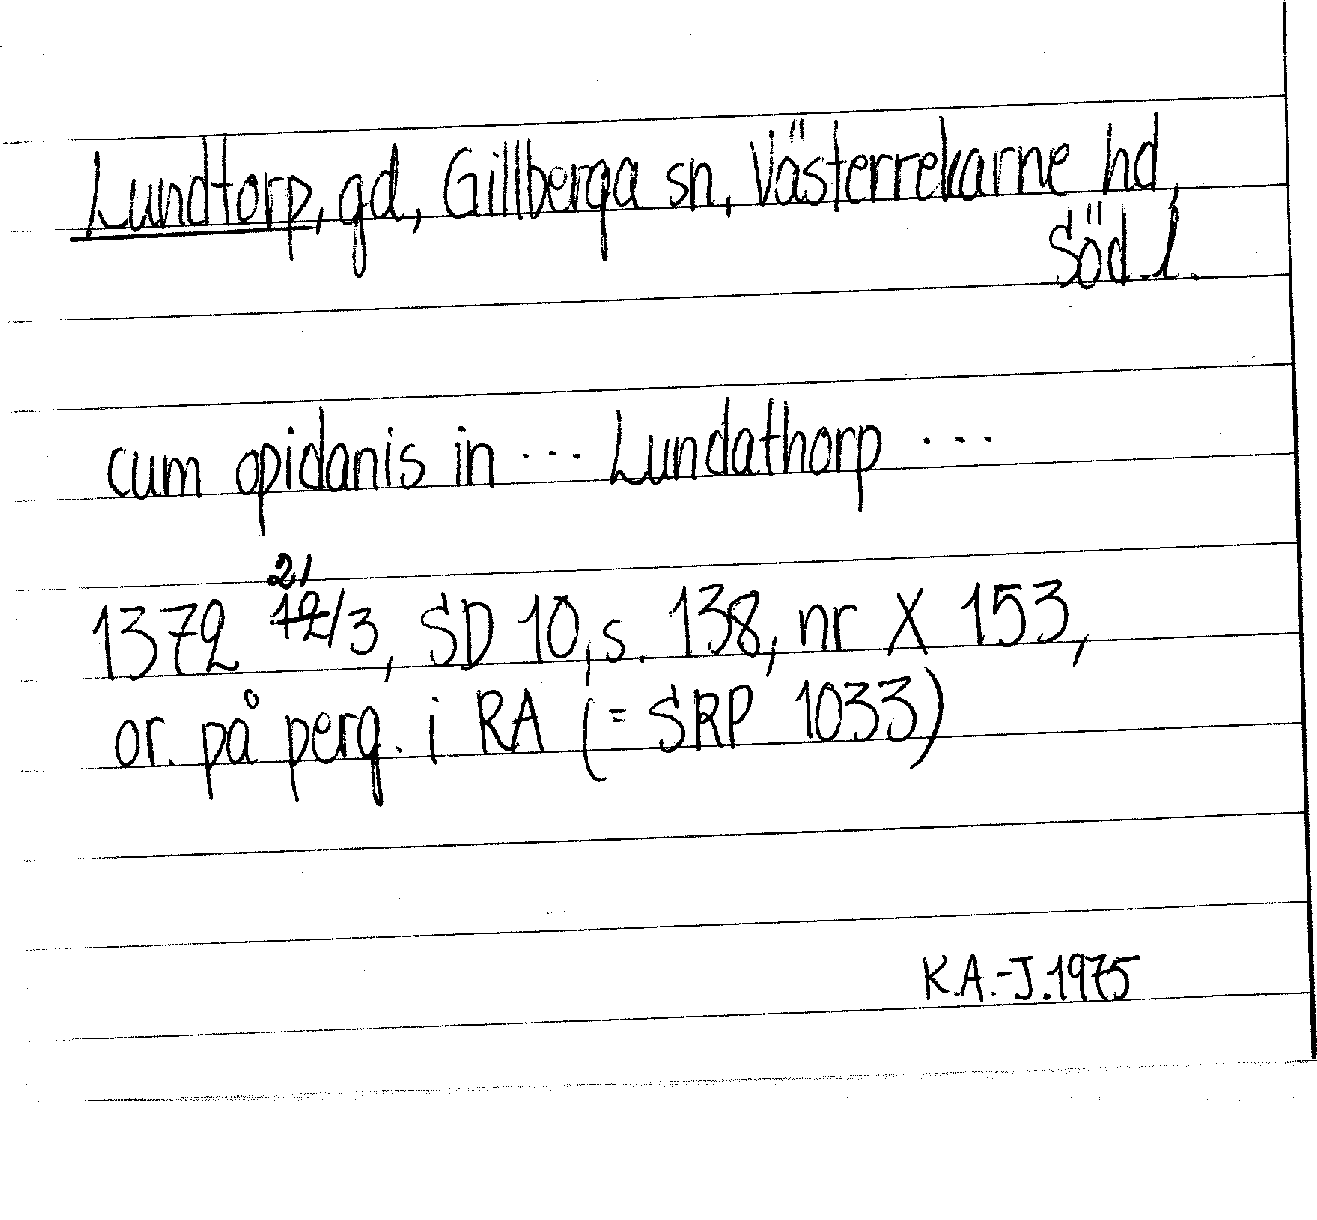 Lundtorp, gd, Gillberga sn, Västerrekarne hd,
Söd. l.
cum opidanis in ... Lundathorp ...
21
1372 12/3, SD 10, s. 138, nr X 153,
or. på perg. i RA (= SRP 1033)
K.A.-J. 1975